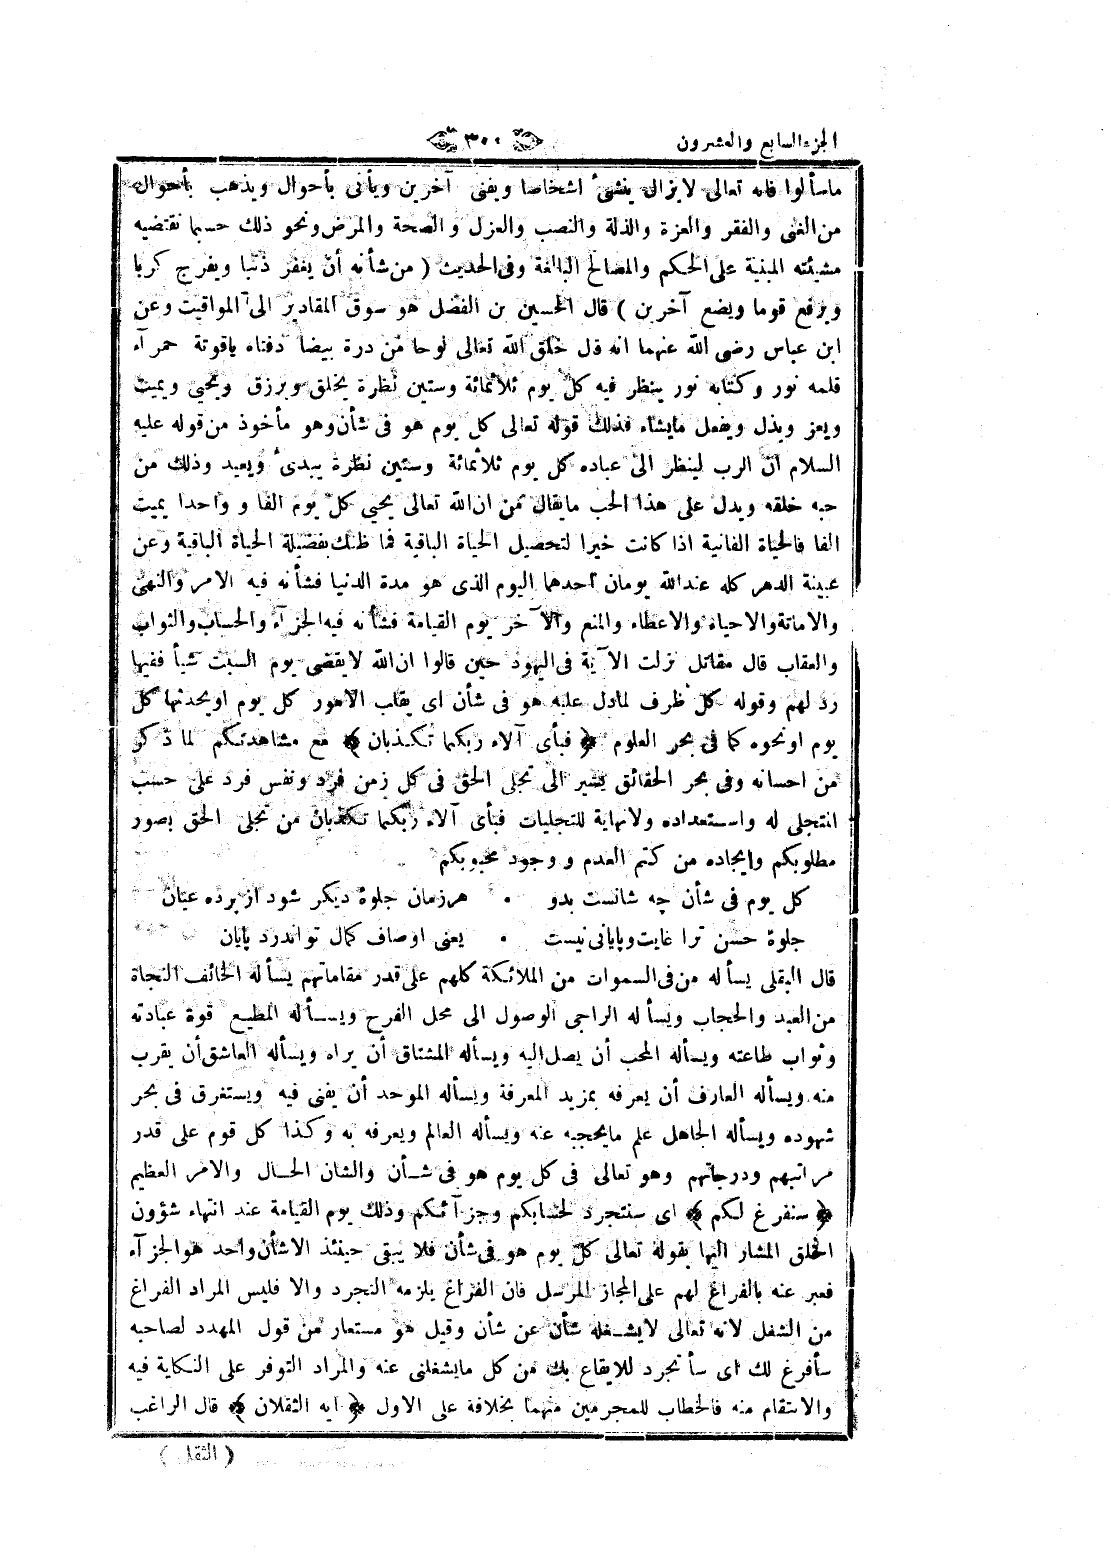 الجزء السابع والعشرون ٣٠٠
ماسألوا فانه تعالى لايزال ينشئ اشخاصا ويفنى آخرين ويأتى بأحوال ويذهب بأحوال
من الغنى والفقر والعزة والذلة والنصب والعزل والصحة والمرض ونحو ذلك حسبما تقتضيه
مشيئته المبنية على الحكم والمصالح البالغة وفى الحديث ( من شأنه أن يغفر ذنبا ويفرج كربا
ويرفع قوما ويضع آخرين ) قال الحسين بن الفضل هو سوق المقادير الى المواقيت وعن
ابن عباس رضى الله عنهما انه قال خلق الله تعالى لوحا من درة بيضا دفتاه ياقوتة حمرآء
قلمه نور وكتابه نور ينظر فيه كل يوم ثلاثمائة وستين نظرة يخلق ويرزق ويحيى ويميت
ويعز ويذل ويفعل مايشاء فذلك قوله تعالى كل يوم هو فى شأن وهو مأخوذ من قوله عليه
السلام ان الرب لينظر الى عباده كل يوم ثلاثمائة وستين نظرة يبدئ ويعيد وذلك من
حبه خلقه ويدل على هذا الحب مايقال من ان الله تعالى يحيى كل يوم الفا و واحدا يميت
الفا فالحياة الفانية اذا كانت خيرا لتحصيل الحياة الباقية فما ظنك بفضيلة الحياة الباقية وعن
عيينة الدهر كله عند الله يومان أحدهما اليوم الذى هو مدة الدنيا فشأنه فيه الامر والنهى
والاماتة والاحياء والاعطاء والمنع والآخر يوم القيامة فشأنه فيه الجزآء والحساب والثواب
والعقاب قال مقاتل نزلت الآية فى اليهود حين قالوا ان الله لايقضى يوم السبت شيأ ففيها
رد لهم وقوله كل ظرف لمادل عليه هو فى شأن اى يقلب الامور كل يوم اويحدثها كل
يوم اونحوه كما فى بحر العلوم ﴿ فبأى آلاء ربكما تكذبان ﴾ مع مشاهدتكم لما ذكر
من احسانه وفى بحر الحقائق يشير الى تجلى الحق فى كل زمن فرد ونفس فرد على حسب
المتجلى له واستعداده ولانهاية للتجليات فبأى آلاء ربكما تكذبان من تجلى الحق بصور
مطلوبكم وايجاده من كتم العدم و وجود محبوبكم
كل يوم فى شأن چه شانست بدو • هرزمان جلوهٔ ديكر شود از پرده عيان
جلوهٔ حسن ترا غايت وپايانى نيست • يعنى اوصاف كمال تو اندرد پايان
قال البقلى يسأله من فى السموات من الملائكة كلهم على قدر مقاماتهم يسأله الخائف النجاة
من العبد والحجاب ويسأله الراجى الوصول الى محل الفرح ويسأله المطيع قوة عبادته
وثواب طاعته ويسأله المحب أن يصل اليه ويسأله المشتاق أن يراه ويسأله العاشق أن يقرب
منه ويسأله العارف أن يعرفه بمزيد المعرفة ويسأله الموحد أن يفنى فيه ويستغرق فى بحر
شهوده ويسأله الجاهل علم مايحجبه عنه ويسأله العالم ويعرفه به وكذا كل قوم على قدر
مراتبهم ودرجاتهم وهو تعالى فى كل يوم هو فى شأن والشان الحال والامر العظيم
﴿ سنفرغ لكم ﴾ اى سنتجرد لحسابكم وجزآئكم وذلك يوم القيامة عند انتهاء شؤون
الخلق المشار اليها بقوله تعالى كل يوم هو فى شأن فلا يبقى حينئذ الاشأن واحد هو الجزآء
فعبر عنه بالفراغ لهم على المجاز المرسل فان الفراغ يلزمه التجرد والا فليس المراد الفراغ
من الشغل لانه تعالى لايشغله شأن عن شأن وقيل هو مستعار من قول المهدد لصاحبه
سأفرغ لك اى سأتجرد للايقاع بك من كل مايشغلنى عنه والمراد التوفر على النكاية فيه
والانتقام منه فالخطاب للمجرمين منهما بخلافه على الاول ﴿ ايه الثقلان ﴾ قال الراغب
( الثقل )